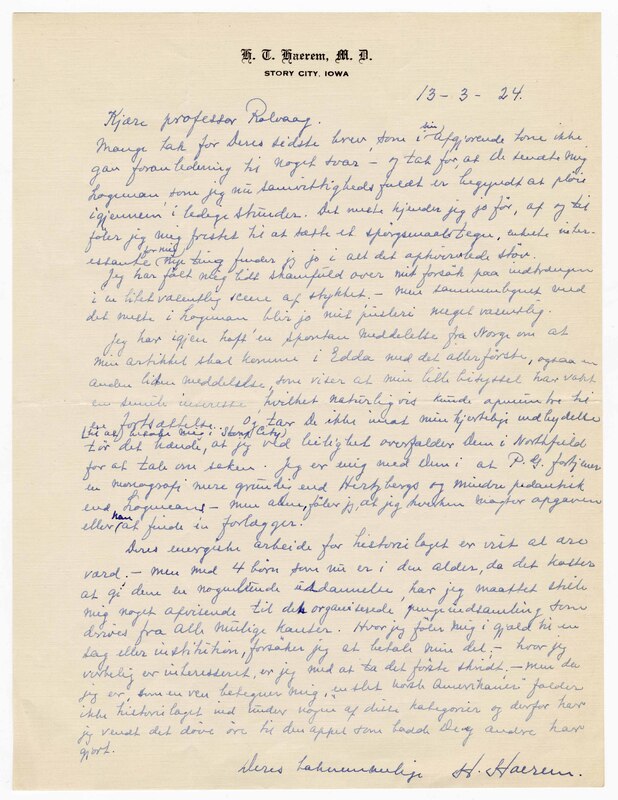 H. T. Haerem, M. D.
STORY CITY, IOWA
13 - 3 - 24.
Kjære professor Rølvaag.
Mange tak for Deres sidste brev, som i sin afgjørende tone ikke
gav foranledning til noget svar — og tak for, at De sendte mig
Logeman som jeg nu samvittighedsfuldt er begyndt at pløie
igjennem i ledige stunder. Det meste kjender jeg jo før, af og til
føler jeg mig fristet til at sætte et spørgsmaalstegn, enkelte inter-
essante for mig nye ting finder jeg jo i alt det ophvirvlede støv.
Jeg har følt mig lidt skamfuld over mit forsøk paa indtrængen
i en litet væsentlig scene af stykket — men sammenlignet med
det meste i Logeman blir jo mit pusleri meget væsentlig.
Jeg har igjen haft en spontan meddelelse fra Norge om at
min artikkel skal komme i Edda med det allerførste, ogsaa en
anden liden meddelelse, som viser at min lille bisyssel har vakt
en smule interesse, hvilket naturligvis kunde opmuntre til
en fortsættelse. Og tar De ikke imot min hjertelige indbydelse
(til at besøke mig i Story City)
tør det hænde, at jeg ved leilighet overfalder Dem i Northfield
for at tale om saken. Jeg er enig med Dem i at P. G. fortjener
en monografi mere grundig end Hertzbergs og mindre pedantisk
end Logemans — men alene føler jeg, at jeg hverken magter opgaven
eller kan at finde en forlægger.
Deres energiske arbeide for historielaget er vist al ære
værd. — men med 4 børn som nu er i den alder, da det koster
at gi dem en nogenlunde uddannelse, har jeg maattet stille
mig noget afvisende til den organiserede pengeindsamling som
drives fra alle mulige kanter. Hvor jeg føler mig i gjæld til en
sag eller institution, forsøker jeg at betale min del, — hvor jeg
virkelig er interesseret, er jeg med at ta det første skridt, — men da
jeg er, som en ven betegner mig, "en slet norsk Amerikaner" falder
ikke historielaget ind under nogen af disse kategorier og derfor har
jeg vendt det døve øre til den appel som baade De og andre har
gjort.
Deres taknemmelige H. Haerem.